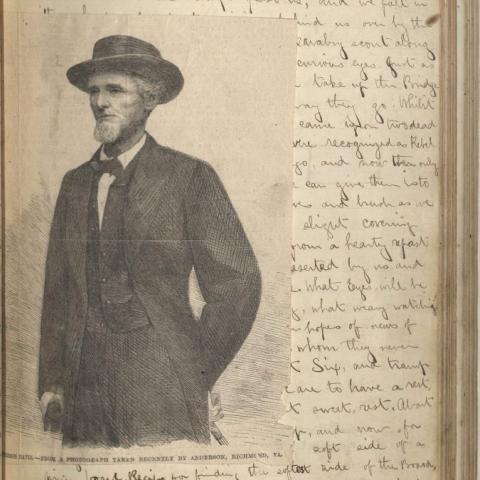 us, and we fall in
us over by the
cavalry scout along
curious eyes. Just as
take up the Bridge
way they go. Whilst
came upon two dead
were recognized as Rebel
go, and now then only
can give them is to
and brush as we
slight covering
from a hearty repast
deserted by us and
What Eyes will be
what weary watching
hopes of news of
whom they never
Six, and tramp
are to have a rest,
sweet, rest. About
and now for
soft side of a
DAVIS.—FROM A PHOTOGRAPH TAKEN RECENTLY BY ANDERSON, RICHMOND, VA.
for finding the softest side of the Board,